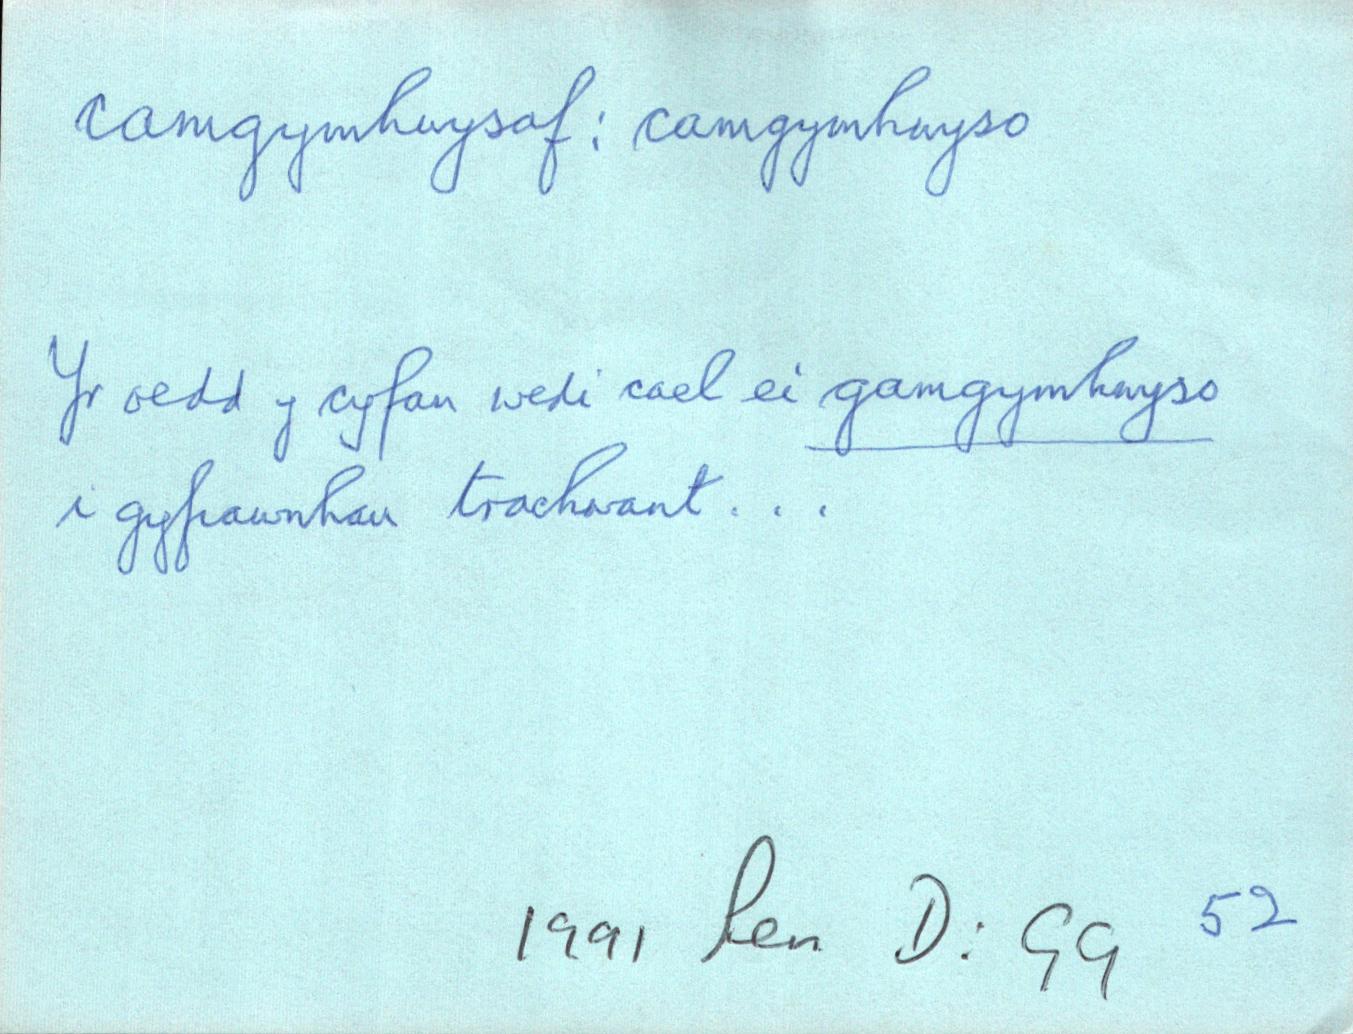 camgymhwysaf: camgymhwyso
Yr oedd y cyfan wedi cael ei gamgymhwyso
i gyfiawnhau trachwant...
1991 Pen D: GG 52